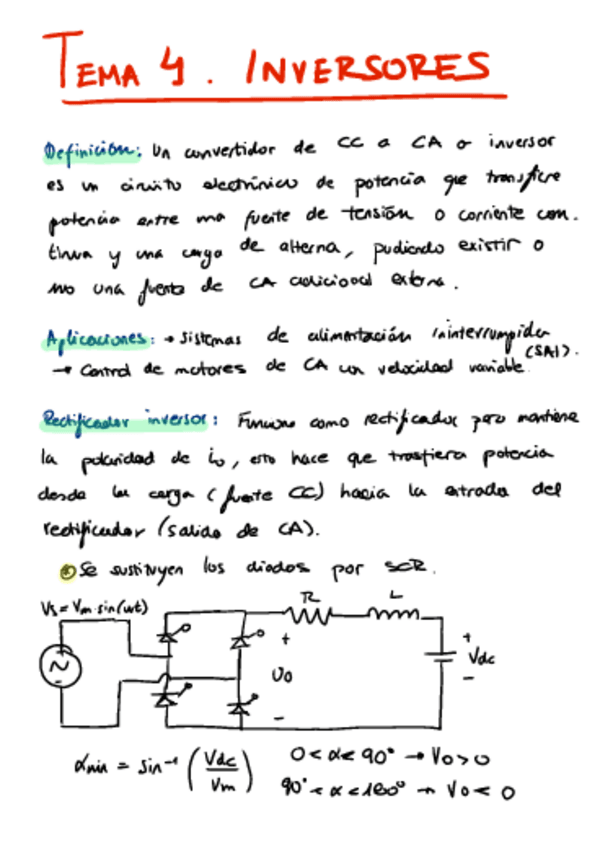 TEMA 4. INVERSORES
Definición: Un convertidor de CC a CA o inversor
es un circuito electrónico de potencia que transfiere
potencia entre una fuente de tensión o corriente con.
tinua y una carga de alterna, pudiendo existir o
no una fuente de CA adicional externa.
Aplicaciones: → Sistemas de alimentación ininterrumpida
(SAI).
→ Control de motores de CA con velocidad variable.
Rectificador inversor: Funciona como rectificador pero mantiene
la polaridad de io, esto hace que trasfiera potencia
desde la carga (fuente CC) hacia la entrada del
rectificador (salida de CA).
Se sustituyen los diodos por SCR.
Vs = Vm·sin(wt)
R L
+ - Vo
+ Vdc -
αmin = sin⁻¹ (Vdc/Vm) 0<α<90° → Vo>0
90°<α<180° → Vo<0